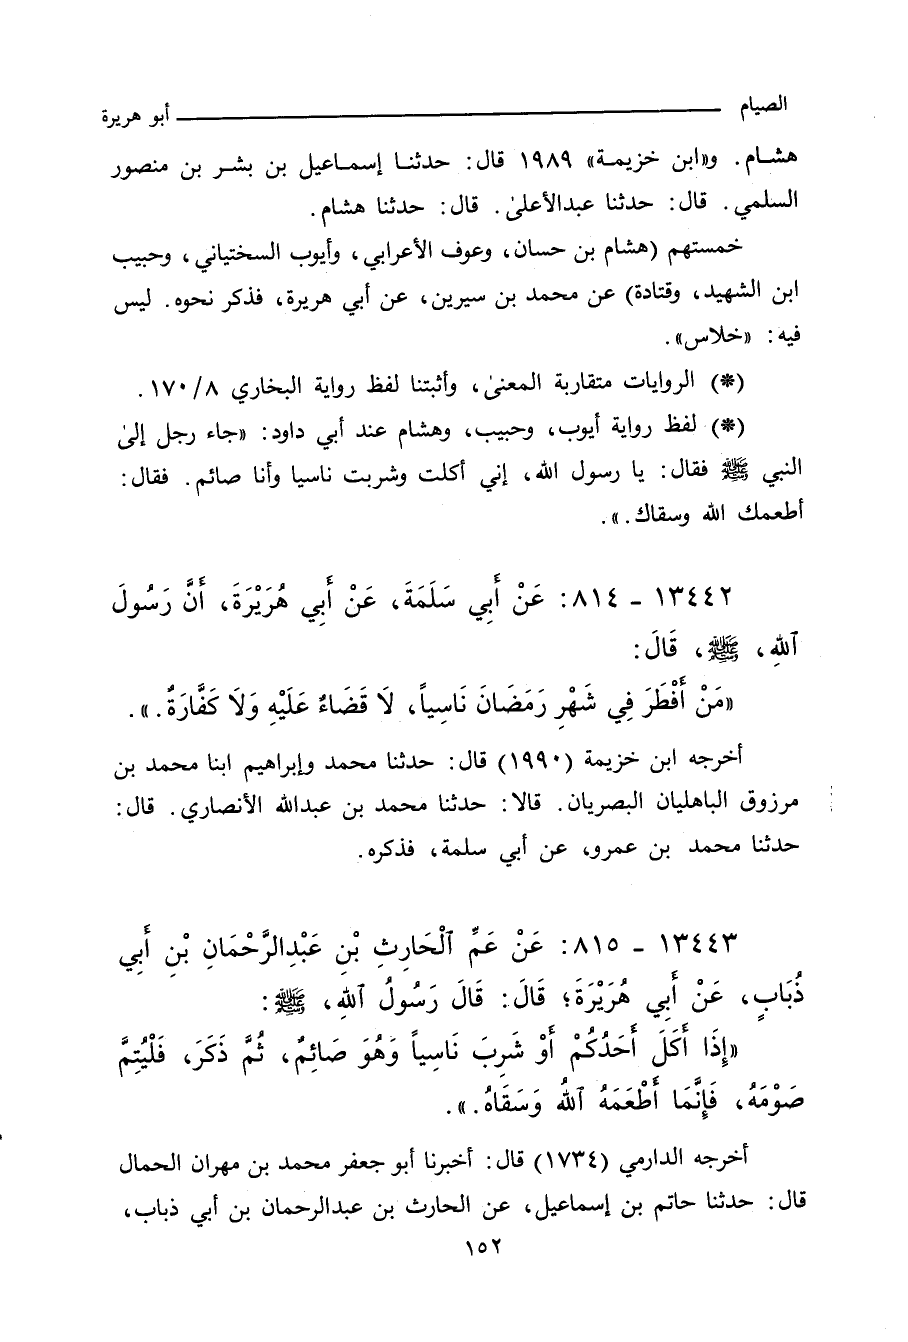 الصيام ــــــــــــــــــــــــ أبو هريرة
هشام. و«ابن خزيمة» ١٩٨٩ قال: حدثنا إسماعيل بن بشر بن منصور
السلمي. قال: حدثنا عبدالأعلىٰ. قال: حدثنا هشام.
خمستهم (هشام بن حسان، وعوف الأعرابي، وأيوب السختياني، وحبيب
ابن الشهيد، وقتادة) عن محمد بن سيرين، عن أبي هريرة، فذكر نحوه. ليس
فيه: «خلاس».
(*) الروايات متقاربة المعنىٰ، وأثبتنا لفظ رواية البخاري ٨/١٧٠.
(*) لفظ رواية أيوب، وحبيب، وهشام عند أبي داود: «جاء رجل إلىٰ
النبي ﷺ فقال: يا رسول الله، إني أكلت وشربت ناسيا وأنا صائم. فقال:
أطعمك الله وسقاك.».
١٣٤٤٢ - ٨١٤: عَنْ أَبِي سَلَمَةَ، عَنْ أَبِي هُرَيْرَةَ، أَنَّ رَسُولَ
ٱللهِ، ﷺ، قَالَ:
«مَنْ أَفْطَرَ فِي شَهْرِ رَمَضَانَ نَاسِياً، لَا قَضَاءُ عَلَيْهِ وَلَا كَفَّارَةٌ.».
أخرجه ابن خزيمة (١٩٩٠) قال: حدثنا محمد وإبراهيم ابنا محمد بن
مرزوق الباهليان البصريان. قالا: حدثنا محمد بن عبدالله الأنصاري. قال:
حدثنا محمد بن عمرو، عن أبي سلمة، فذكره.
١٣٤٤٣ - ٨١٥: عَنْ عَمِّ ٱلْحَارِثِ بْنِ عَبْدِالرَّحْمَانِ بْنِ أَبِي
ذُبَابٍ، عَنْ أَبِي هُرَيْرَةَ؛ قَالَ: قَالَ رَسُولُ ٱللهِ، ﷺ:
«إِذَا أَكَلَ أَحَدُكُمْ أَوْ شَرِبَ نَاسِياً وَهُوَ صَائِمٌ، ثُمَّ ذَكَرَ، فَلْيُتِمَّ
صَوْمَهُ، فَإِنَّمَا أَطْعَمَهُ ٱللهُ وَسَقَاهُ.».
أخرجه الدارمي (١٧٣٤) قال: أخبرنا أبو جعفر محمد بن مهران الحمال
قال: حدثنا حاتم بن إسماعيل، عن الحارث بن عبدالرحمان بن أبي ذباب،
١٥٢